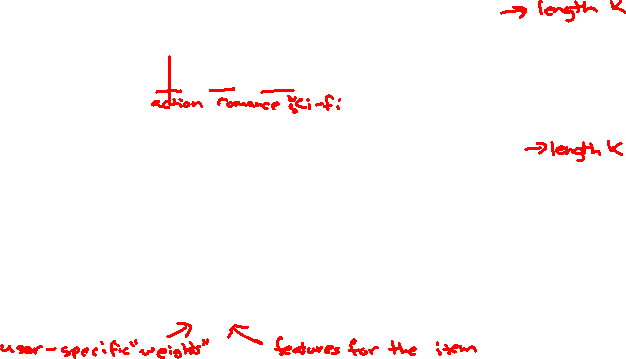 → length K
action romance sci-fi
→ length K
user-specific "weights" features for the item